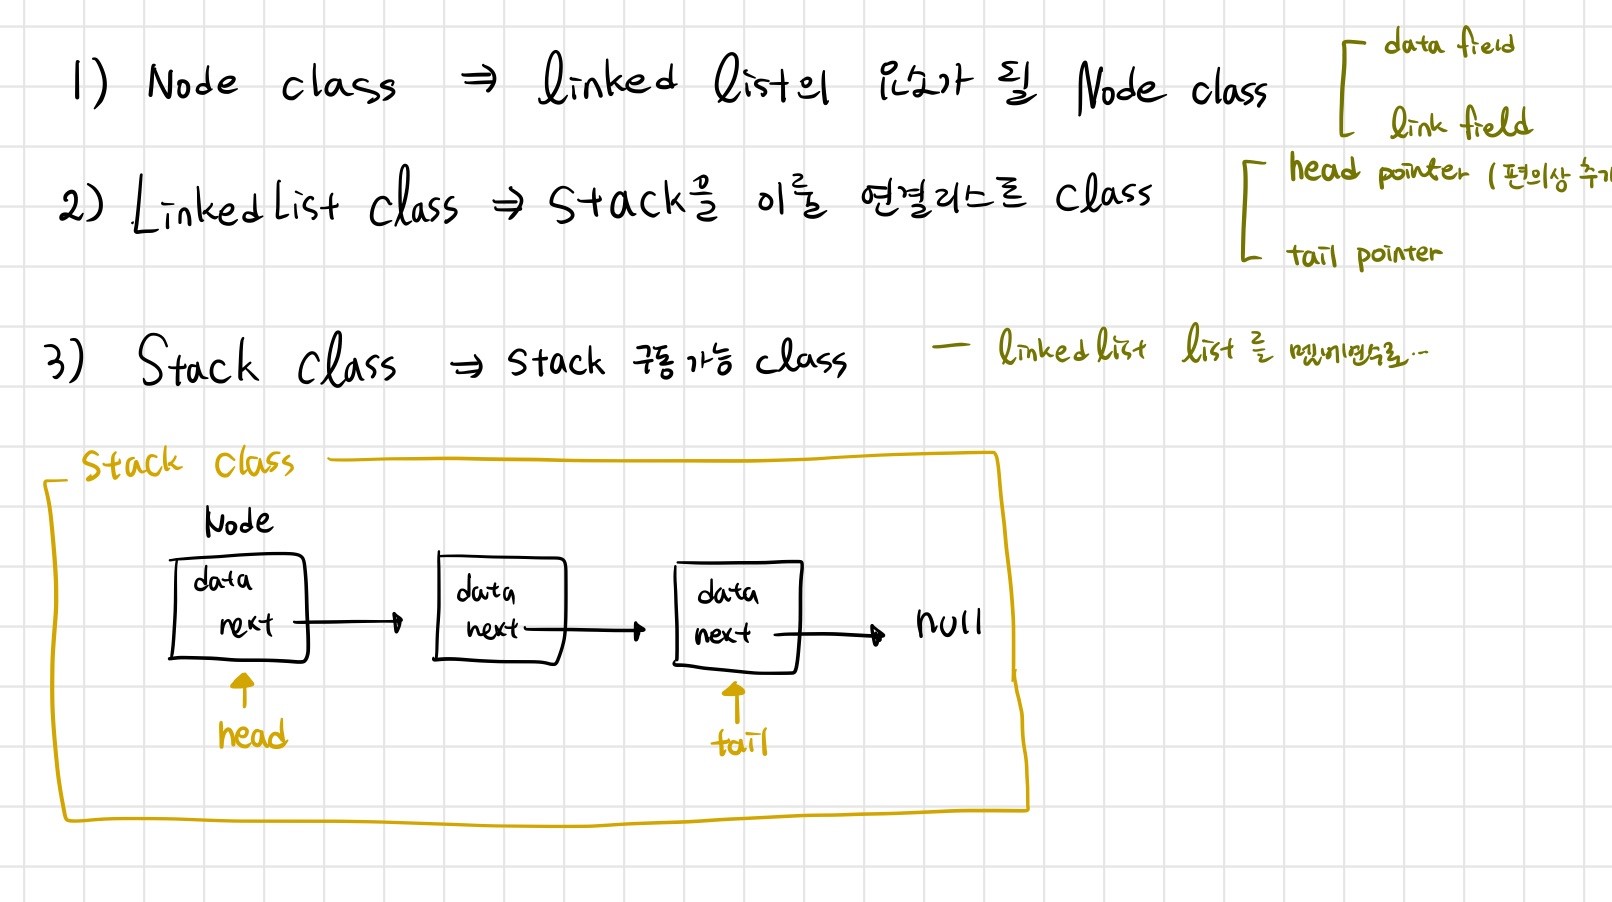 1) Node class ⇒ linked list의 요소가 될 Node class
data field
link field
2) LinkedList class ⇒ Stack을 이룰 연결리스트 class
head pointer (편의상 추가
tail pointer
3) Stack class ⇒ stack 구동 가능 class — linked list list를 멤버변수로...
Stack class
Node
data data data
next next next null
head tail